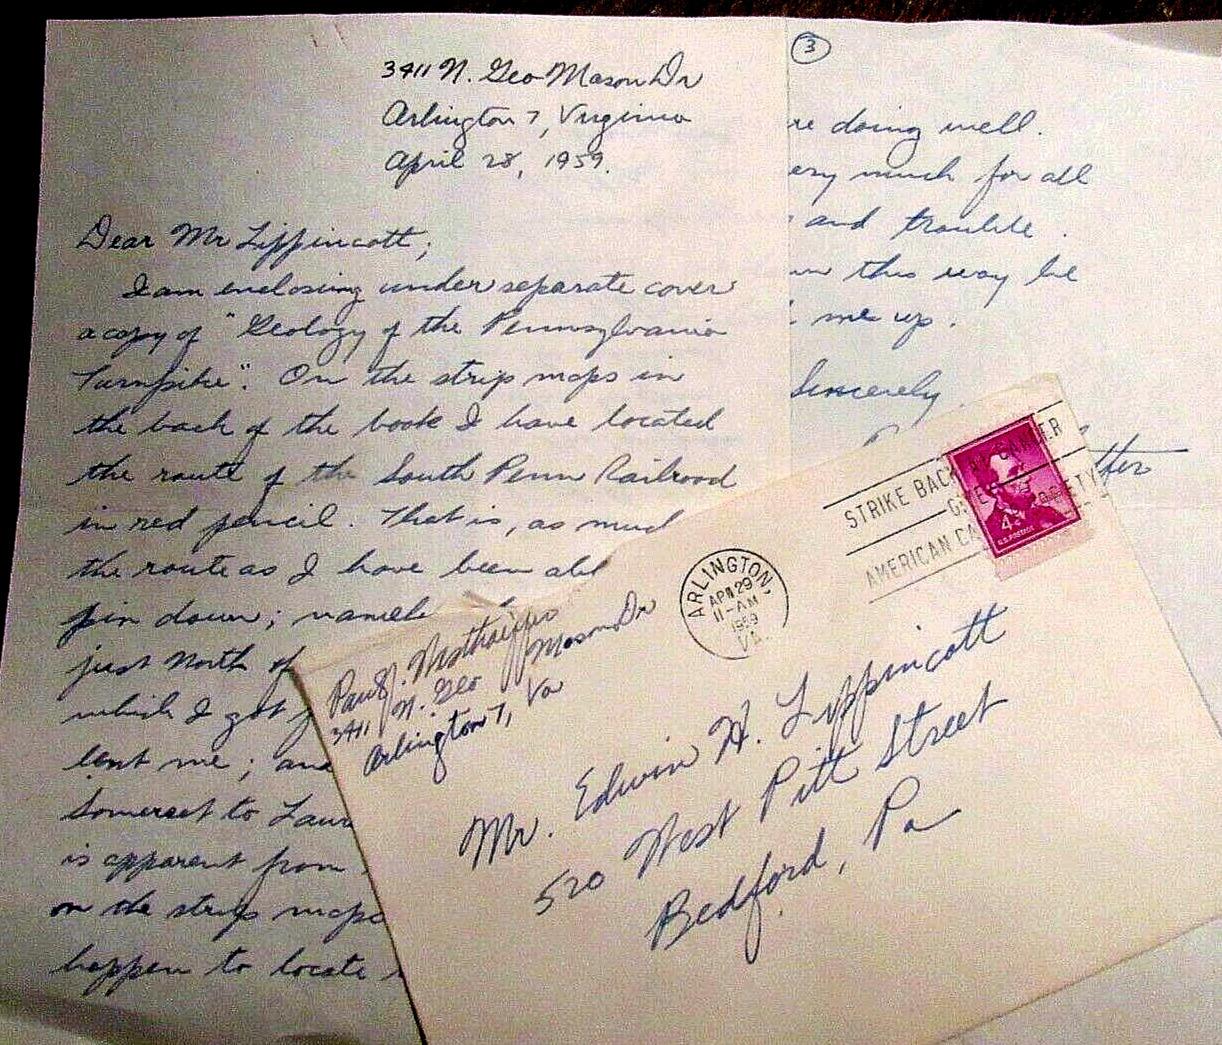 3411 N. Geo Mason Dr
Arlington 7, Virginia
April 28, 1959.
Dear Mr Lippincott;
I am enclosing under separate cover
a copy of "Geology of the Pennsylvania
Turnpike". On the strip maps in
the back of the book I have located
the route of the South Penn Railroad
in red pencil. That is, as much
the route as I have been abl
pin down; namel
just North of
which I got
lent me; and
Somerset to Laur
is apparent from
on the strip maps
happen to locate
3
re doing well.
ery much for all
and trouble.
this way be
me up.
Sincerely
STRIKE BACK AT CANCER
GIVE
AMERICAN CA SOCIETY
4¢
U.S. POSTAGE
ARLINGTON,
APR 29
11-AM
1959
VA.
Paul J.
3411 N. Geo Mason Dr
Arlington 7, Va
Mr. Edwin H. Lippincott
520 West Pitt Street
Bedford, Pa